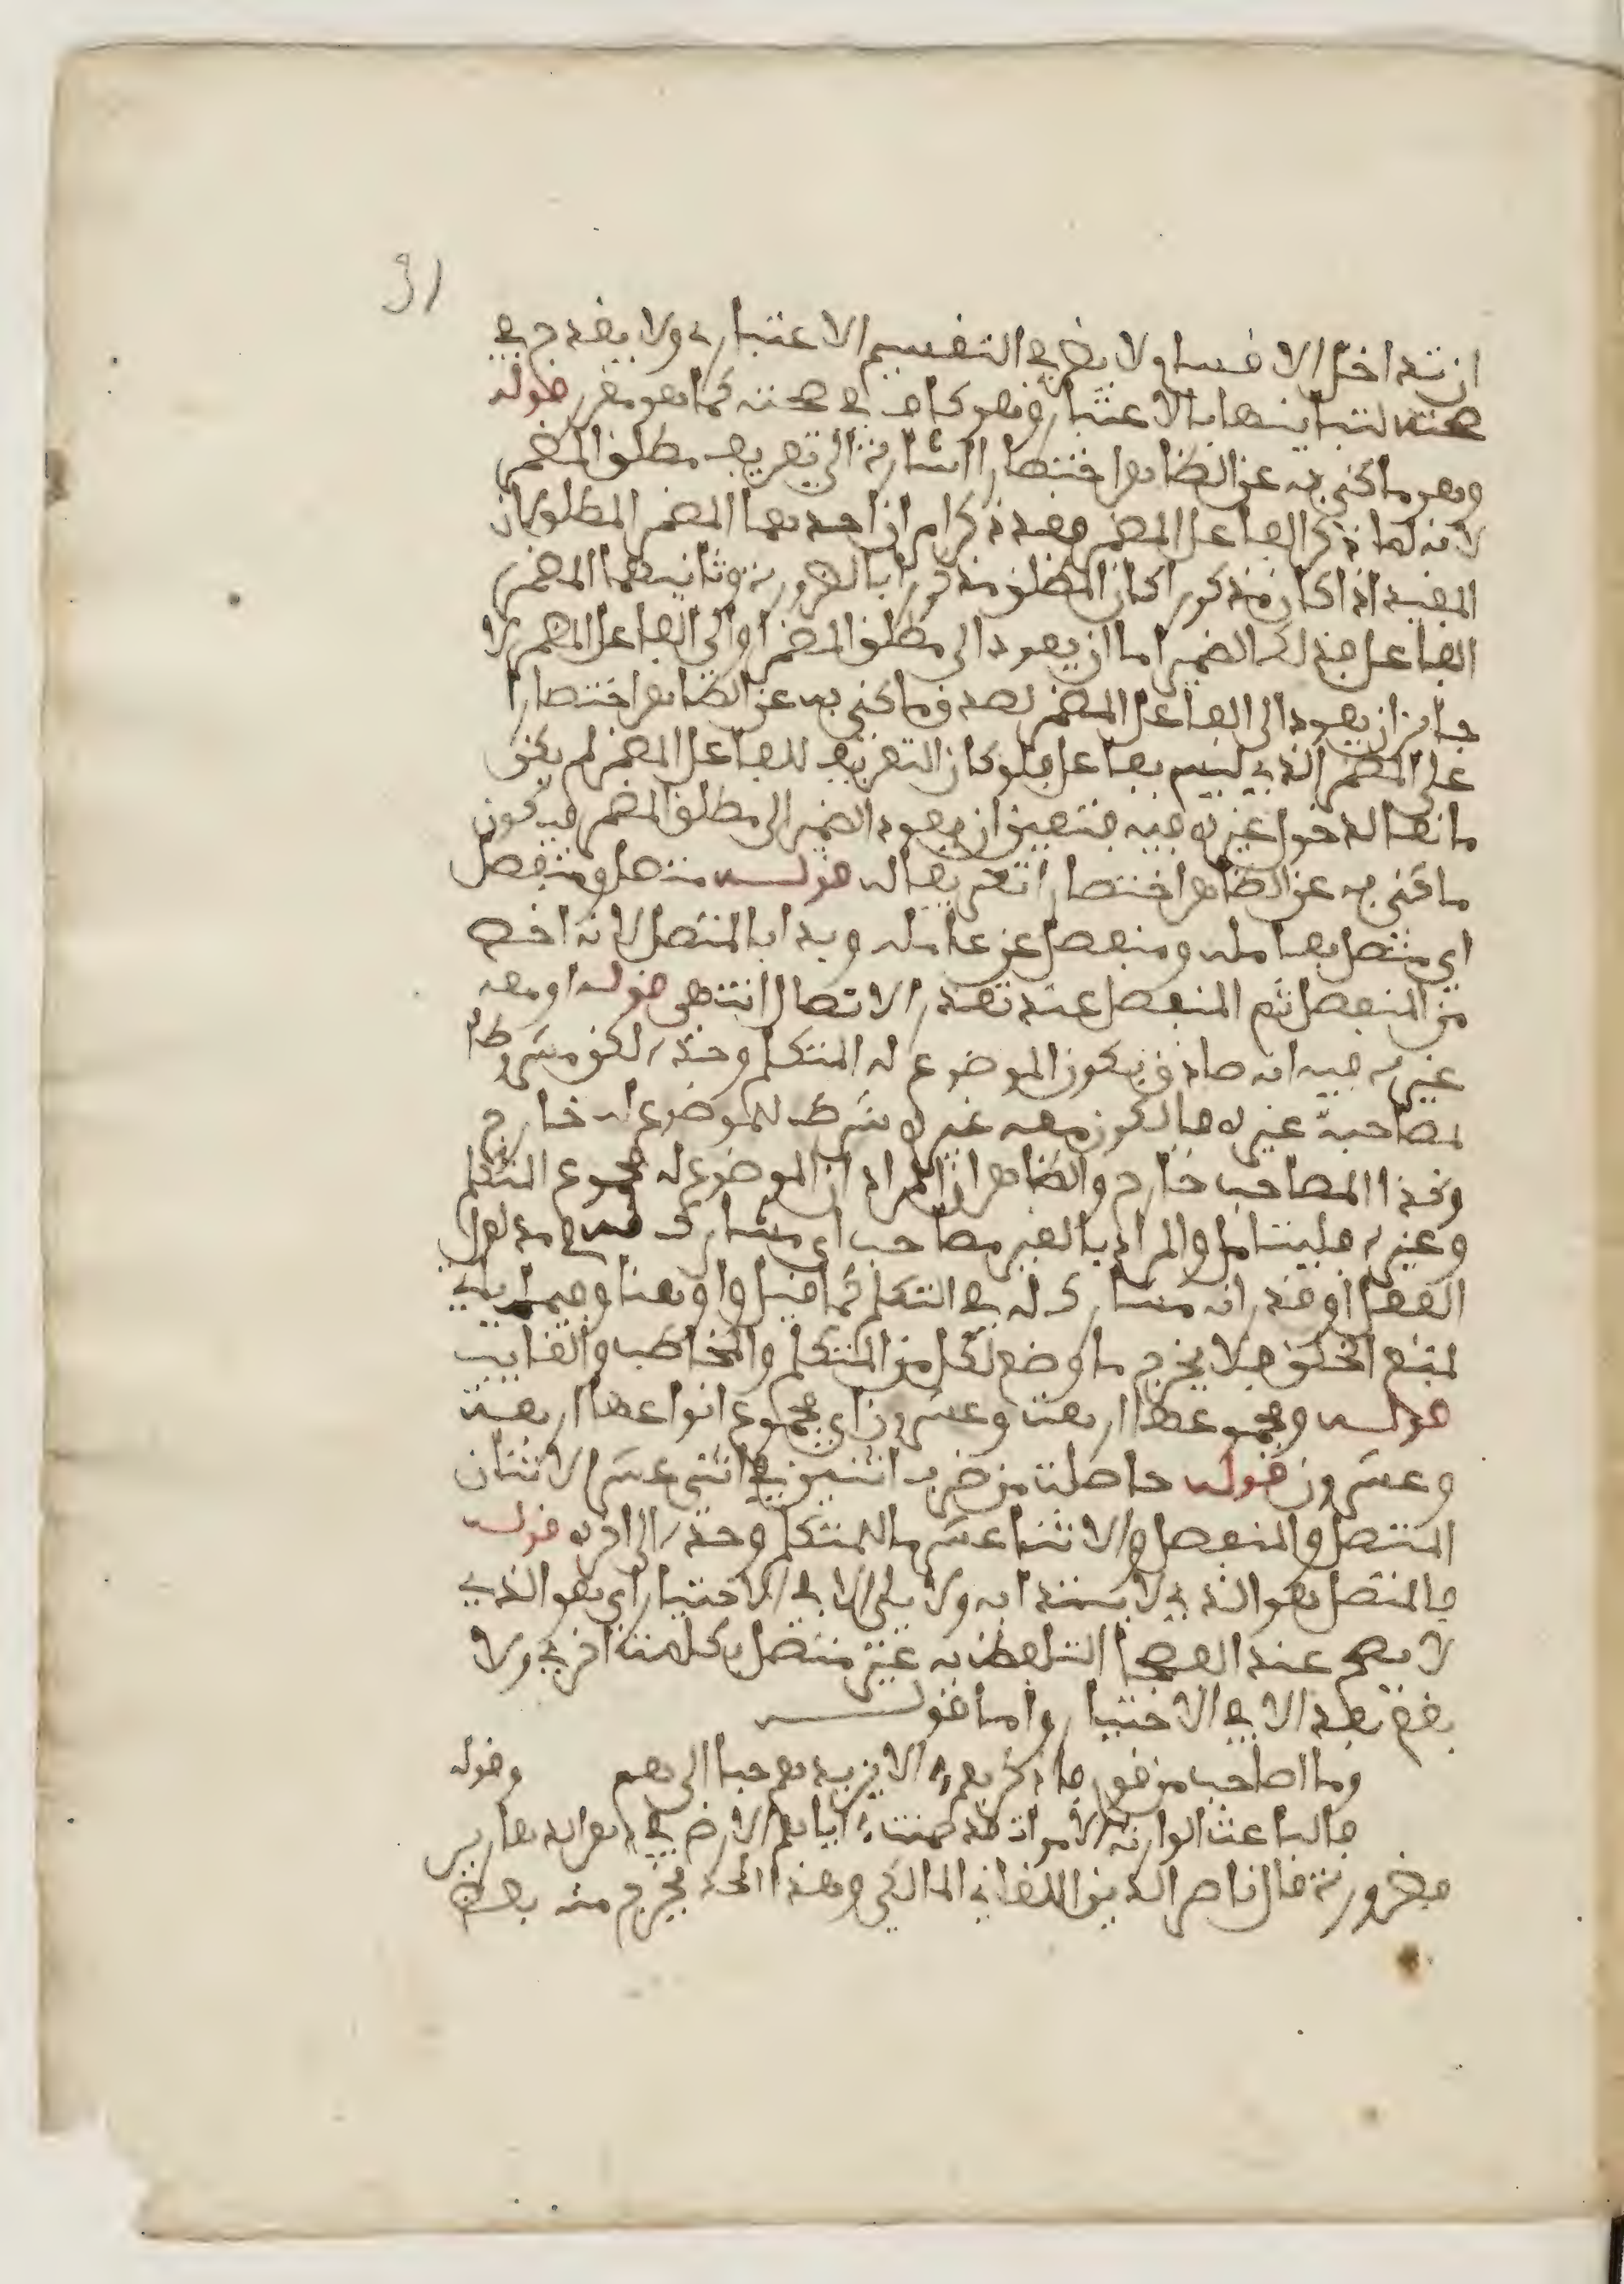 91
ان تداخل الاقسام لا يضر في التقسيم الاعتباري ولا يقدح في
صحته لتباينها بالاعتبار وهو كاف في صحته كما هو مقرر قوله
وهو ما كني به عن الظاهر اختصارا اشارة الى تعريف مطلق المضمر
لانه لما ذكر الفاعل المضمر فقد ذكر امران احدهما المضمر المطلق لان
المقيد اذا كان مذكورا كان المطلق مذكورا بالضرورة وثانيهما المضمر
الفاعل فذلك الضمير اما ان يعود الى مطلق المضمر او الى الفاعل المضمر لا
جائز ان يعود الى الفاعل المضمر لصدق ما كني به عن الظاهر اختصارا
على المضمر الذي ليس بفاعل فلو كان التعريف للفاعل المضمر لم يكن
مانعا لدخول غيره فيه فتعين ان يعود الضمير الى مطلق المضمر فيكون
ما كني به عن الظاهر اختصارا تعريفا له قوله متصل ومنفصل
اي متصل بعامله ومنفصل عن عامله وبدا بالمتصل لانه اخصر
من المنفصل ثم المنفصل عند تعذر الاتصال انتهى قوله او معه
غيره فيه انه صادق بكون الموضوع له المتكلم وحده لكن مشروطا
لمصاحبة غيره فالكون معه غيره شرط للموضوع له خارج
وكذا المصاحب خارج والظاهر ان المراد ان الموضوع له مجموع المتكلم
وغيره فليتامل والمراد بالغير مصاحب اي مشارك له في مدلول
الفعل او قدر انه مشارك له في التكلم كما قيل واو هنا وفيما ياتي
لمنع الخلو فلا يخرج ما وضع لكل من المتكلم والمخاطب والغايب
قوله ومجموعها اربعة وعشرون اي مجموع انواعها اربعة
وعشرون قوله حاصلة من ضرب اثنين في اثني عشر الاثنان
المتصل والمنفصل والاثنا عشر ما للمتكلم وحده الى اخره قوله
فالمتصل هو الذي لا يبتدا به ولا يلي الا في الاختيار اي هو الذي
لا يصح عند الفصحا التلفظ به غير متصل بكلمة اخرى ولا
يقع بعد الا في الاختيار واما قوله
وما اصاحب من قوم فاذكرهم الا يزيدهم حبا الى هم وقوله
بالباعث الوارث الاموات قد ضمنت اياهم الارض في دهر الدهارير
فضرورة قال ناصر الدين اللقاني المالكي وهذا الحد يخرج منه بعض